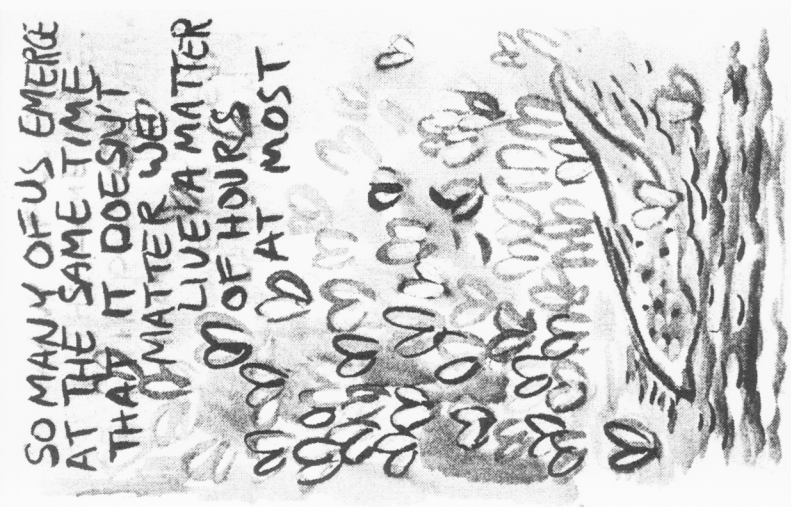 SO MANY OF US EMERGE
AT THE SAME TIME
THAT IT DOESN'T
MATTER WE
LIVE A MATTER
OF HOURS
AT MOST